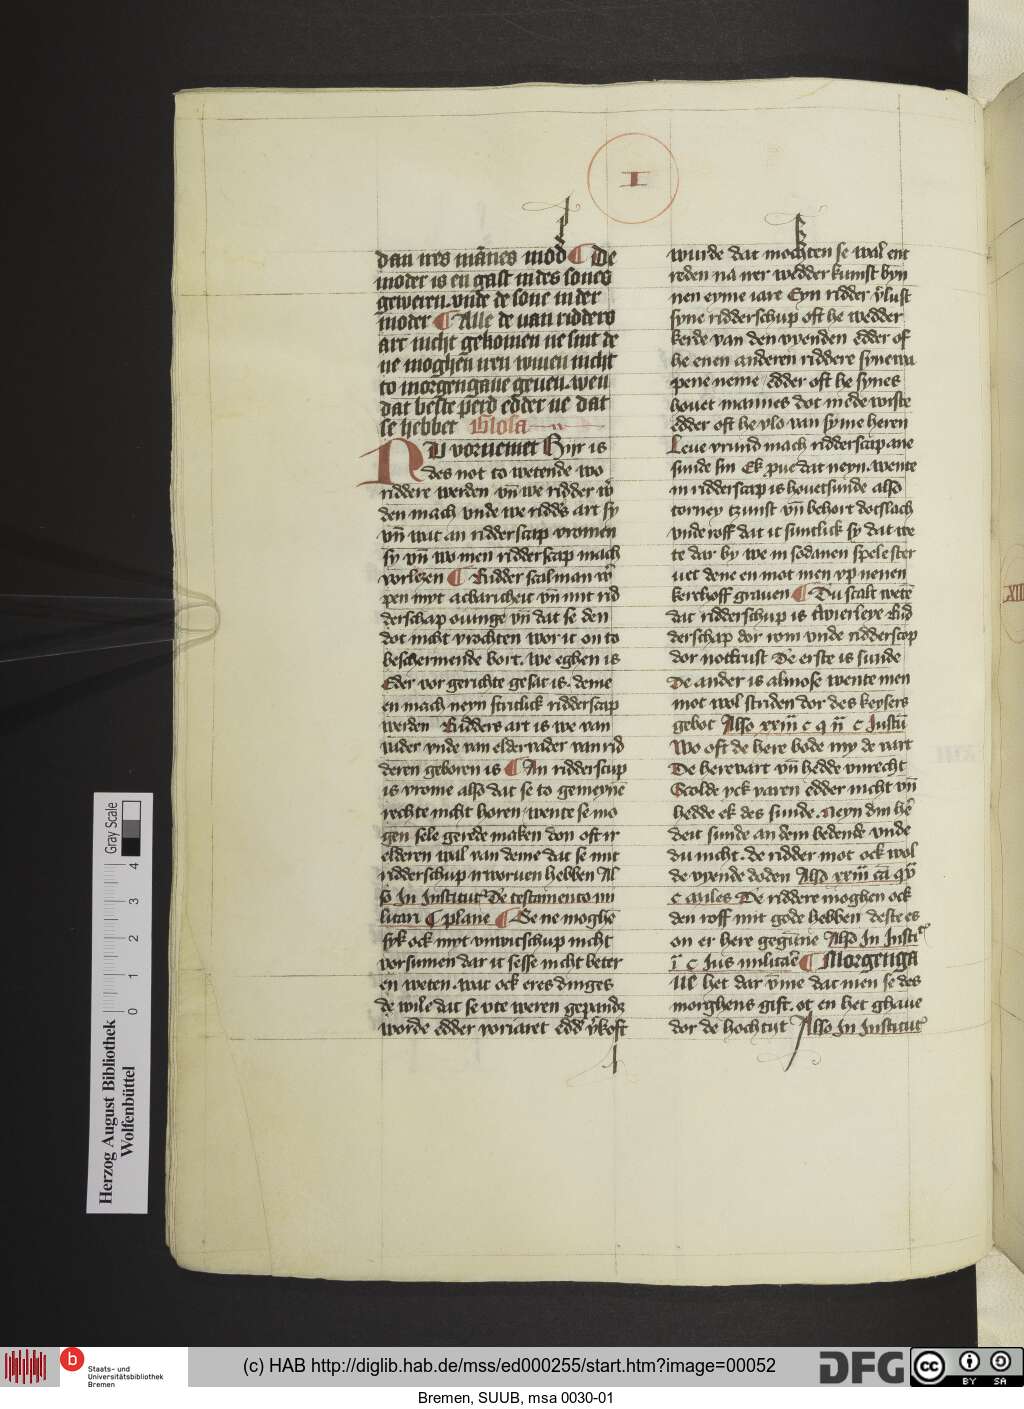 I
dan ires mānes mod ¶ De
moder is en gast in des sones
geweren. vnde de sone in der
moder ¶ Alle de van ridders
art nicht gekomen ne sint de
ne moghen iren wiuen nicht
to morgengaue geuen. wen
dat beste perd edder ve dat
se hebbet Glosa
NU vornemet Hyr is
des not to wetende wo
riddere werden vn̄ we ridder w̄
den mach vnde we ridd's art sy
vn̄ wat an ridderscap vromen
sy vn̄ wo men ridderscap mach
vorlezen ¶ Ridder scal man w̄
pen myt achbaricheit vn̄ mit rid
derschap ouinge vn̄ dat se den
dot nicht vrochten wor it on to
beschermende bort. we eghen is
Eder vor gerichte gesat is. deme
en mach neyn stritlick ridderscap
werden Ridders art is we van
vader vnde van elder vader van rid
deren geboren is ¶ An ridderscup
is vrome also dat se to gemeynē
rechte nicht horen wente se mo
gen sele gerede maken don oft ir
elderen wal van deme dat se mit
ridderschup irworuen hebben Al
so In Institut' De testamento mi
litari ¶ plane ¶ Se ne moghē
syk ock myt vnwitschup nicht
vorsumen dar it sesse nicht beter
en weten. wat ock eres dinges
de wile dat se vte weren gepandz
worde edder voriaret edd' v'koft
wurde dat mochten se wal ent
reden na irer wedder kumst byn
nen eyme iare Eyn ridder v'lust
syne ridderschup oft he wedder
kerde van den vyenden edder of
he enen anderen riddere syne wa
pene neme edder oft he synes
houet mannes dot mede wiste
edder oft he vlo van syme heren
Leue vrund mach ridderscap ane
sunde sin Ek prue dat neyn. wente
in ridderscap is houetsunde also
torney tzunst vn̄ behort dotslach
vnde roff dat it suntlick sy dat we
te dar by we in sodanen spele ster
uet dene en mot men vp nenen
kerchoff grauen ¶ Du scalt wetē
dat ridderschup is twierleye Rid
derschap dor rom vnde ridderscop
dor nottrust De erste is sunde
De ander is almose wente men
mot wol striden dor des keysers
gebot Also xxiii c q ii c Iustū
Wo oft de here bode my de vart
De herevart vn̄ hedde vnrecht
Scolde yck varen edder nicht vn̄
hedde ek des sunde. Neyn din hē
deit sunde an dem bedende vnde
du nicht. de ridder mot ock wol
de vyende doden Also xxiii cā q v
c Miles De riddere moghen ock
den roff mit gode hebben deste es
on er here geg'unne Also In Insti
i c Ius militare ¶ Morgenga
ue het dar v'me dat men se des
morghens gift. ot en het ghaue
dor de hochtyt Also In Institut'
XIII
Gray Scale
0 1 2 3 4
Herzog August Bibliothek
Wolfenbüttel
b
Staats- und
Universitätsbibliothek
Bremen
(c) HAB http://diglib.hab.de/mss/ed000255/start.htm?image=00052
DFG
cc
BY SA
Bremen, SUUB, msa 0030-01